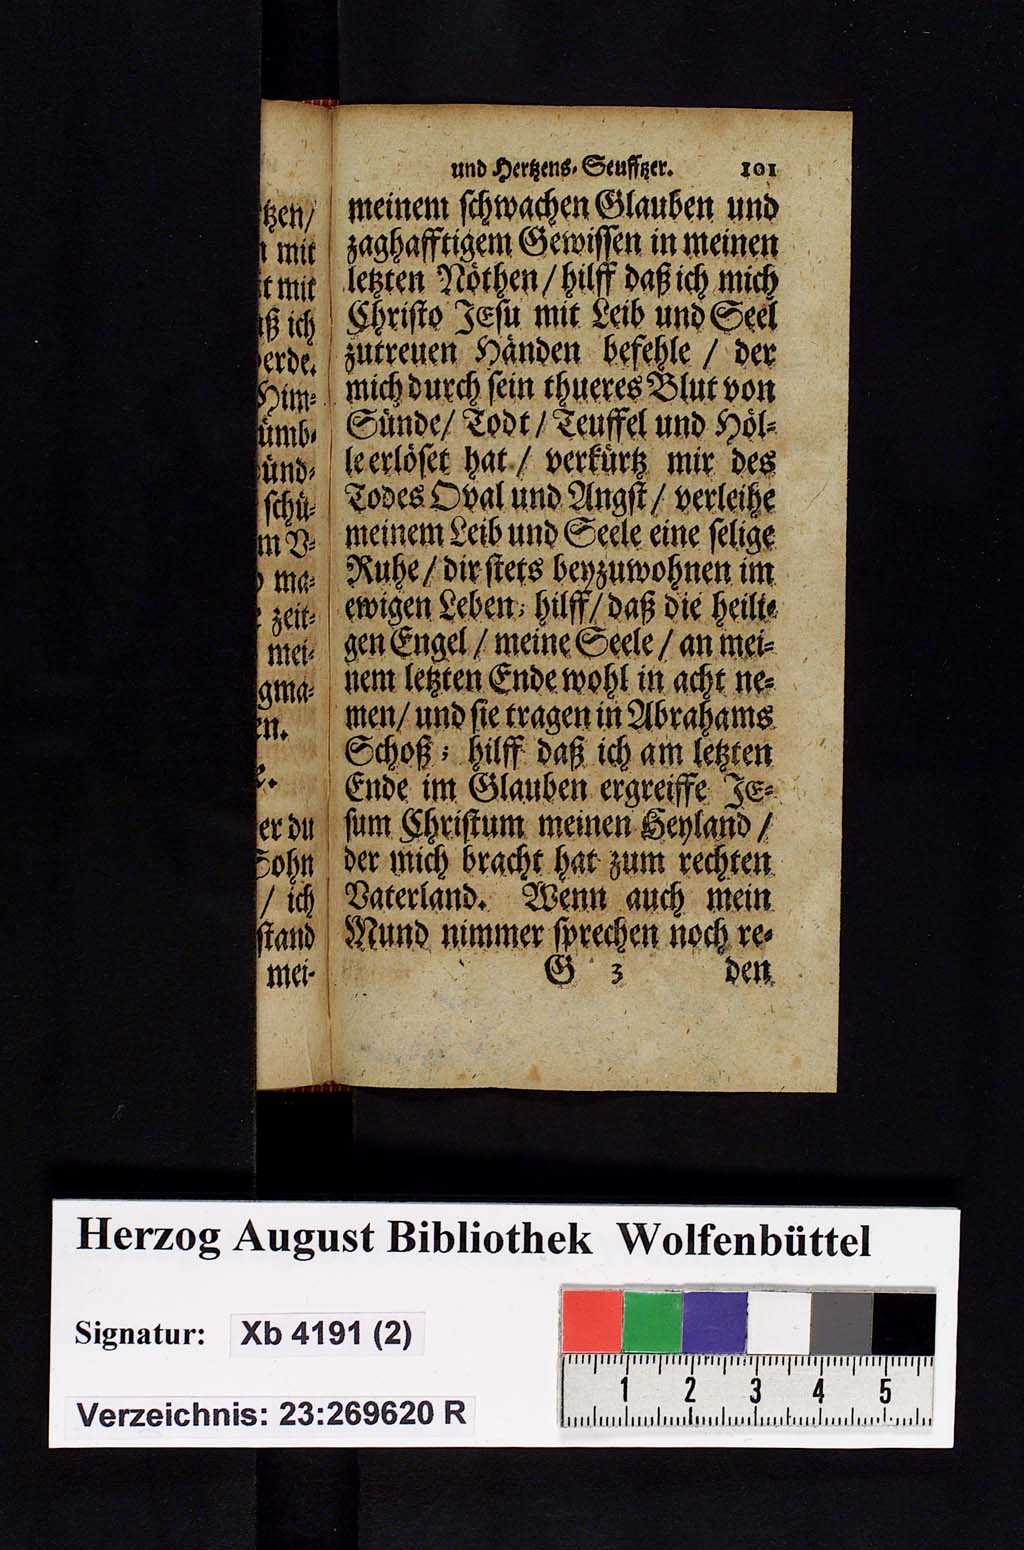 tzen/
mit
t mit
ß ich
erde.
Him⸗
ümb⸗
ünd⸗
schü⸗
m V⸗
ma⸗
zeit⸗
mei⸗
gma⸗
en.
er du
Sohn
/ ich
stand
mei⸗
und Hertzens⸗Seufftzer. 101
meinem schwachen Glauben und
zaghafftigem Gewissen in meinen
letzten Nöthen / hilff daß ich mich
Christo JEsu mit Leib und Seel
zutreuen Händen befehle / der
mich durch sein thueres Blut von
Sünde / Todt / Teuffel und Höl⸗
le erlöset hat / verkürtz mir des
Todes Qval und Angst / verleihe
meinem Leib und Seele eine selige
Ruhe / dir stets beyzuwohnen im
ewigen Leben; hilff / daß die heili⸗
gen Engel / meine Seele / an mei⸗
nem letzten Ende wohl in acht ne⸗
men / und sie tragen in Abrahams
Schoß; hilff daß ich am letzten
Ende im Glauben ergreiffe JE⸗
sum Christum meinen Heyland /
der mich bracht hat zum rechten
Vaterland. Wenn auch mein
Mund nimmer sprechen noch re⸗
G 3 den
Herzog August Bibliothek Wolfenbüttel
Signatur: Xb 4191 (2)
Verzeichnis: 23:269620 R
1 2 3 4 5